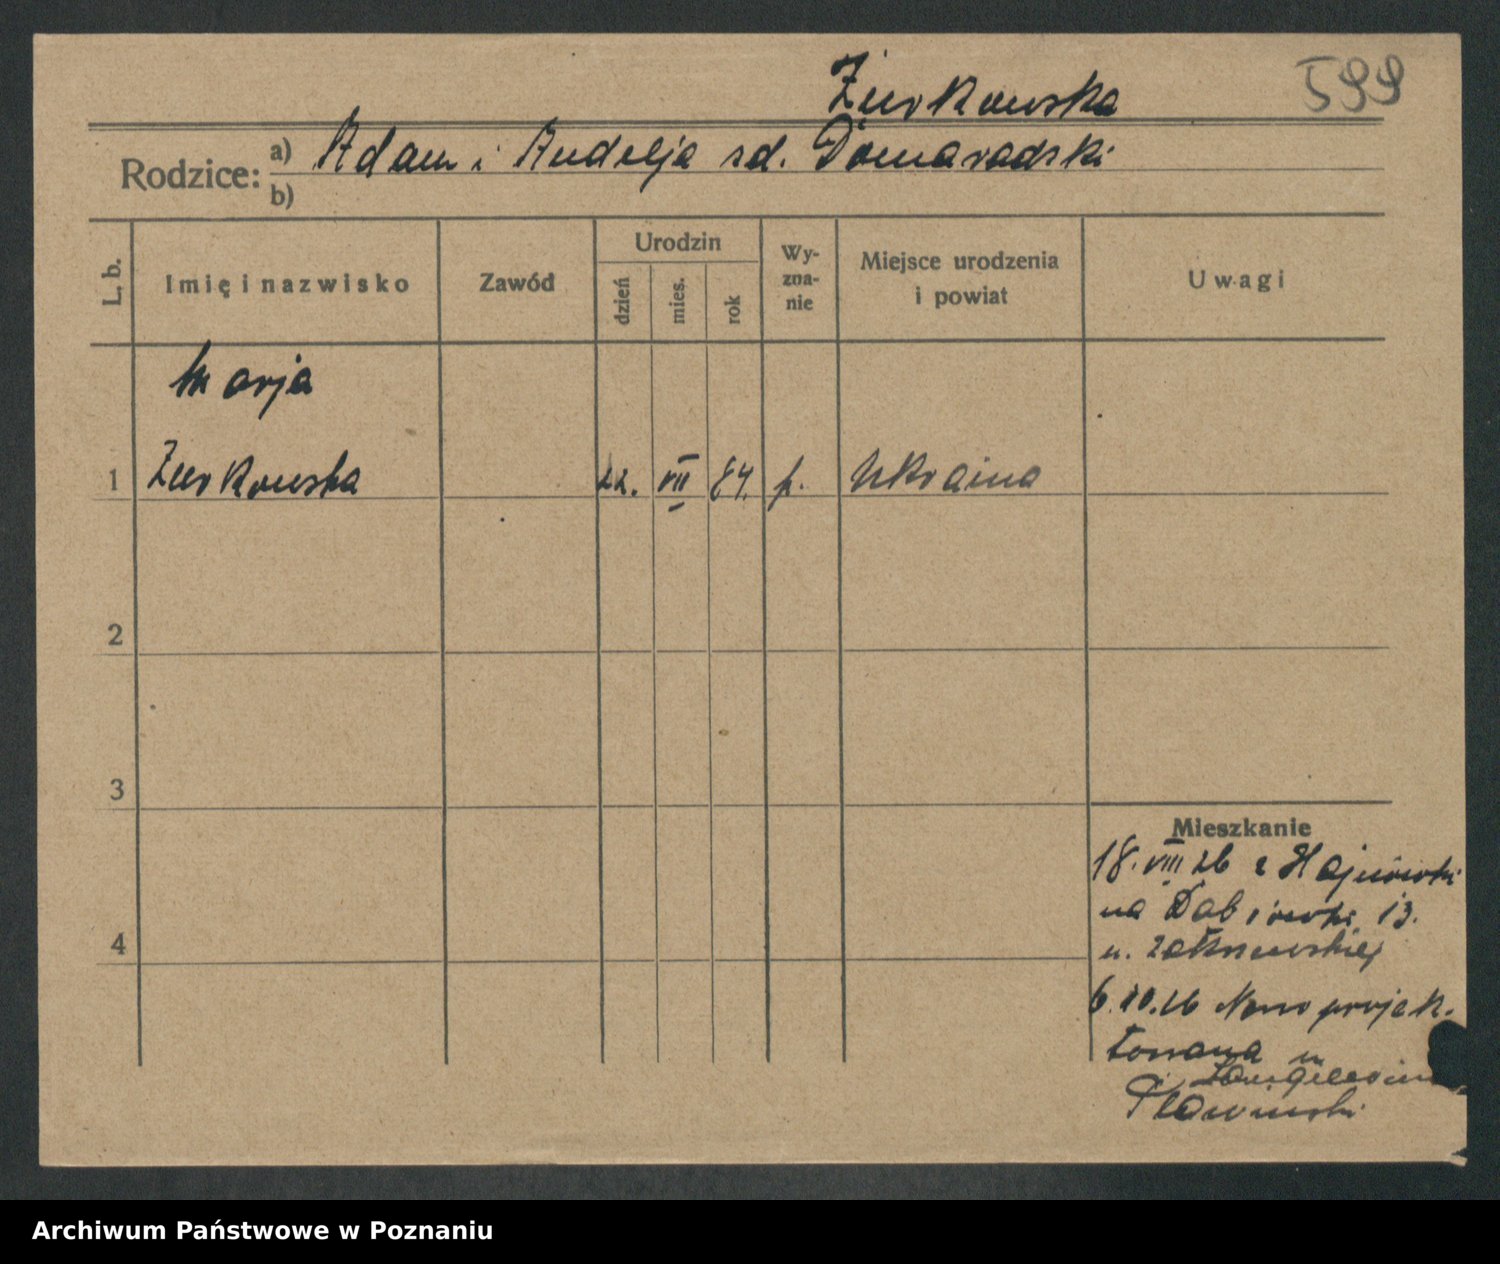 Żurkowska
599
Rodzice: a) Adam i Andelja zd. Domaradzki
b)
L. b.
Imię i nazwisko
Zawód
Urodzin
dzień
mies.
rok
Wy-
zna-
nie
Miejsce urodzenia
i powiat
Uwagi
Marja
1 Żurkowska 22. VII 84. p. Ukraina
2
3
4
Mieszkanie
18. VIII 26 z Hajnówki
na Dąbrówki 13.
u.
6.10.26 Nowo projek-
towana
Archiwum Państwowe w Poznaniu